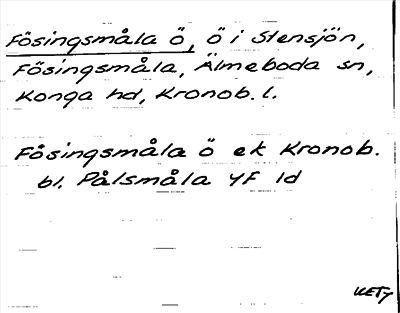 Fösingsmåla ö, ö i Stensjön,
Fösingsmåla, Älmeboda sn,
Konga hd, Kronob. l.
Fösingsmåla ö ek Kronob.
bl. Pålsmåla 4F 1d